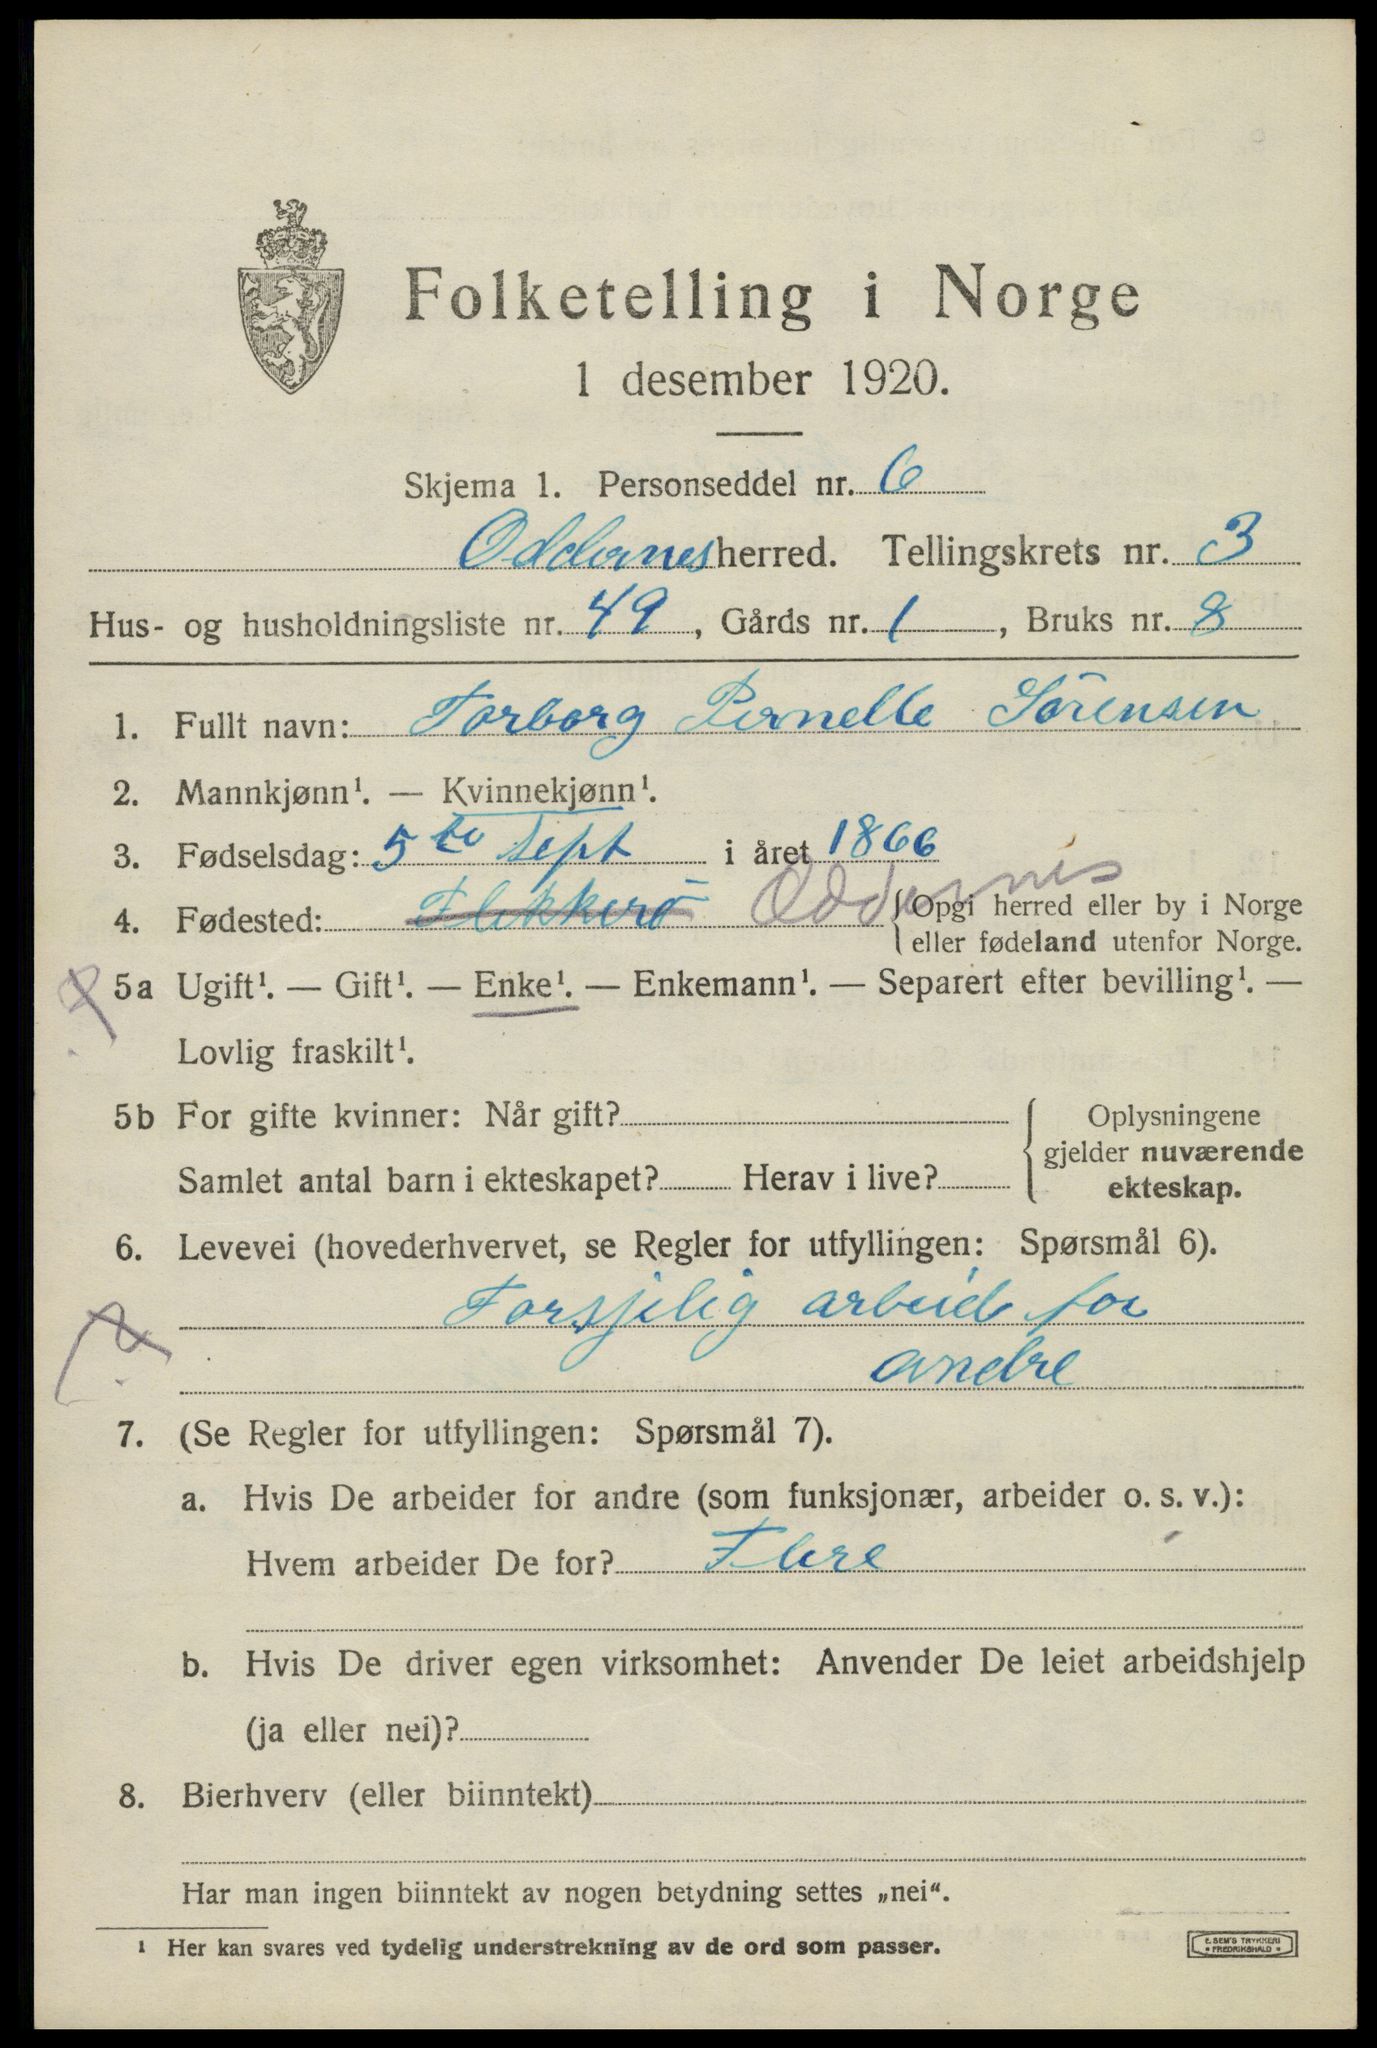 Folketelling i Norge
1 desember 1920.
Skjema 1. Personseddel nr. 6
Oddernes herred. Tellingskrets nr. 3
Hus- og husholdningsliste nr. 49, Gårds nr. 1, Bruks nr. 8
1. Fullt navn: Torborg Pernelle Sörensen
2. Mannkjønn¹. — Kvinnekjønn¹.
3. Fødselsdag: 5te Sept i året 1866
4. Fødested: Flekkerö Oddernes {Opgi herred eller by i Norge
eller fødeland utenfor Norge.
5a Ugift¹. — Gift¹. — Enke¹. — Enkemann¹. — Separert efter bevilling¹. —
Lovlig fraskilt¹.
5b For gifte kvinner: Når gift?
Samlet antal barn i ekteskapet? Herav i live?
{Oplysningene
gjelder nuværende
ekteskap.
6. Levevei (hovederhvervet, se Regler for utfyllingen: Spørsmål 6).
Forsjelig arbeide for
andre
7. (Se Regler for utfyllingen: Spørsmål 7).
a. Hvis De arbeider for andre (som funksjonær, arbeider o. s. v.):
Hvem arbeider De for? Flere
b. Hvis De driver egen virksomhet: Anvender De leiet arbeidshjelp
(ja eller nei)?
8. Bierhverv (eller biinntekt)
Har man ingen biinntekt av nogen betydning settes „nei“.
¹ Her kan svares ved tydelig understrekning av de ord som passer.
E. SEM'S TRYKKERI
• FREDRIKSHALD •